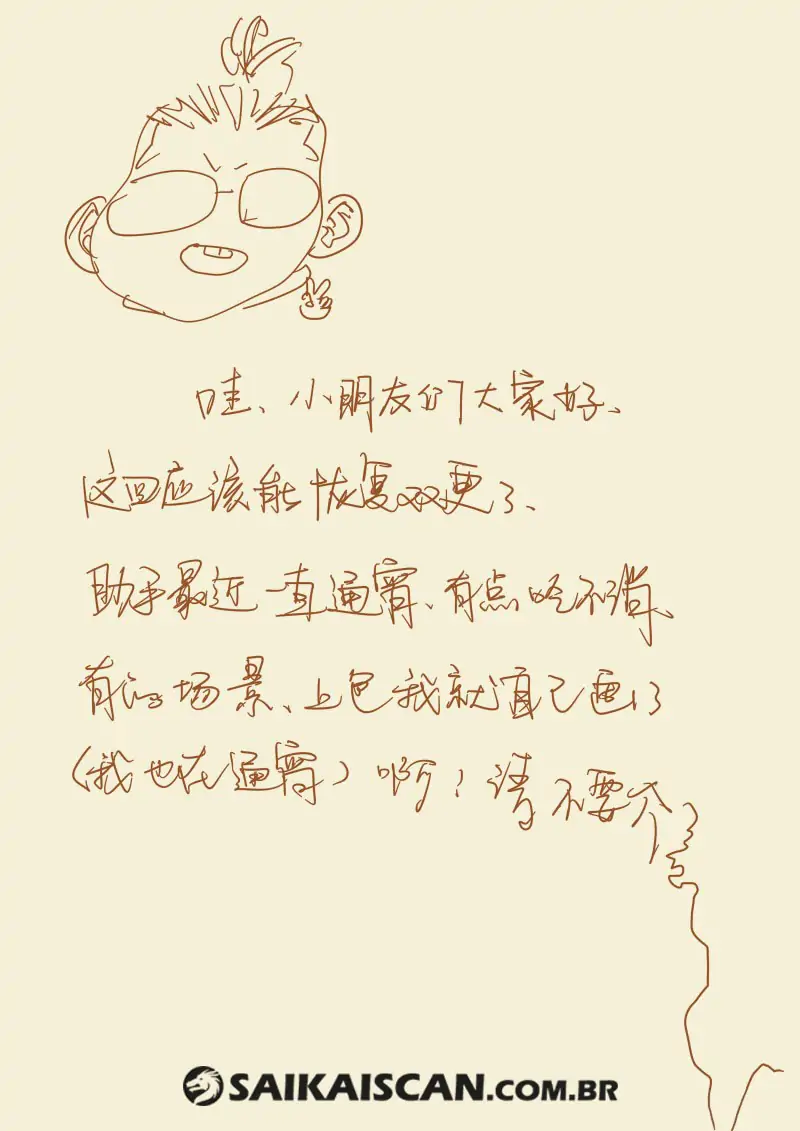 哇、小朋友们大家好、
这回应该能恢复双更了、
助手最近一直通宵、有点吃不消、
有的场景、上色我就自己画了
(我也在通宵)啊！请不要介
SAIKAISCAN.COM.BR